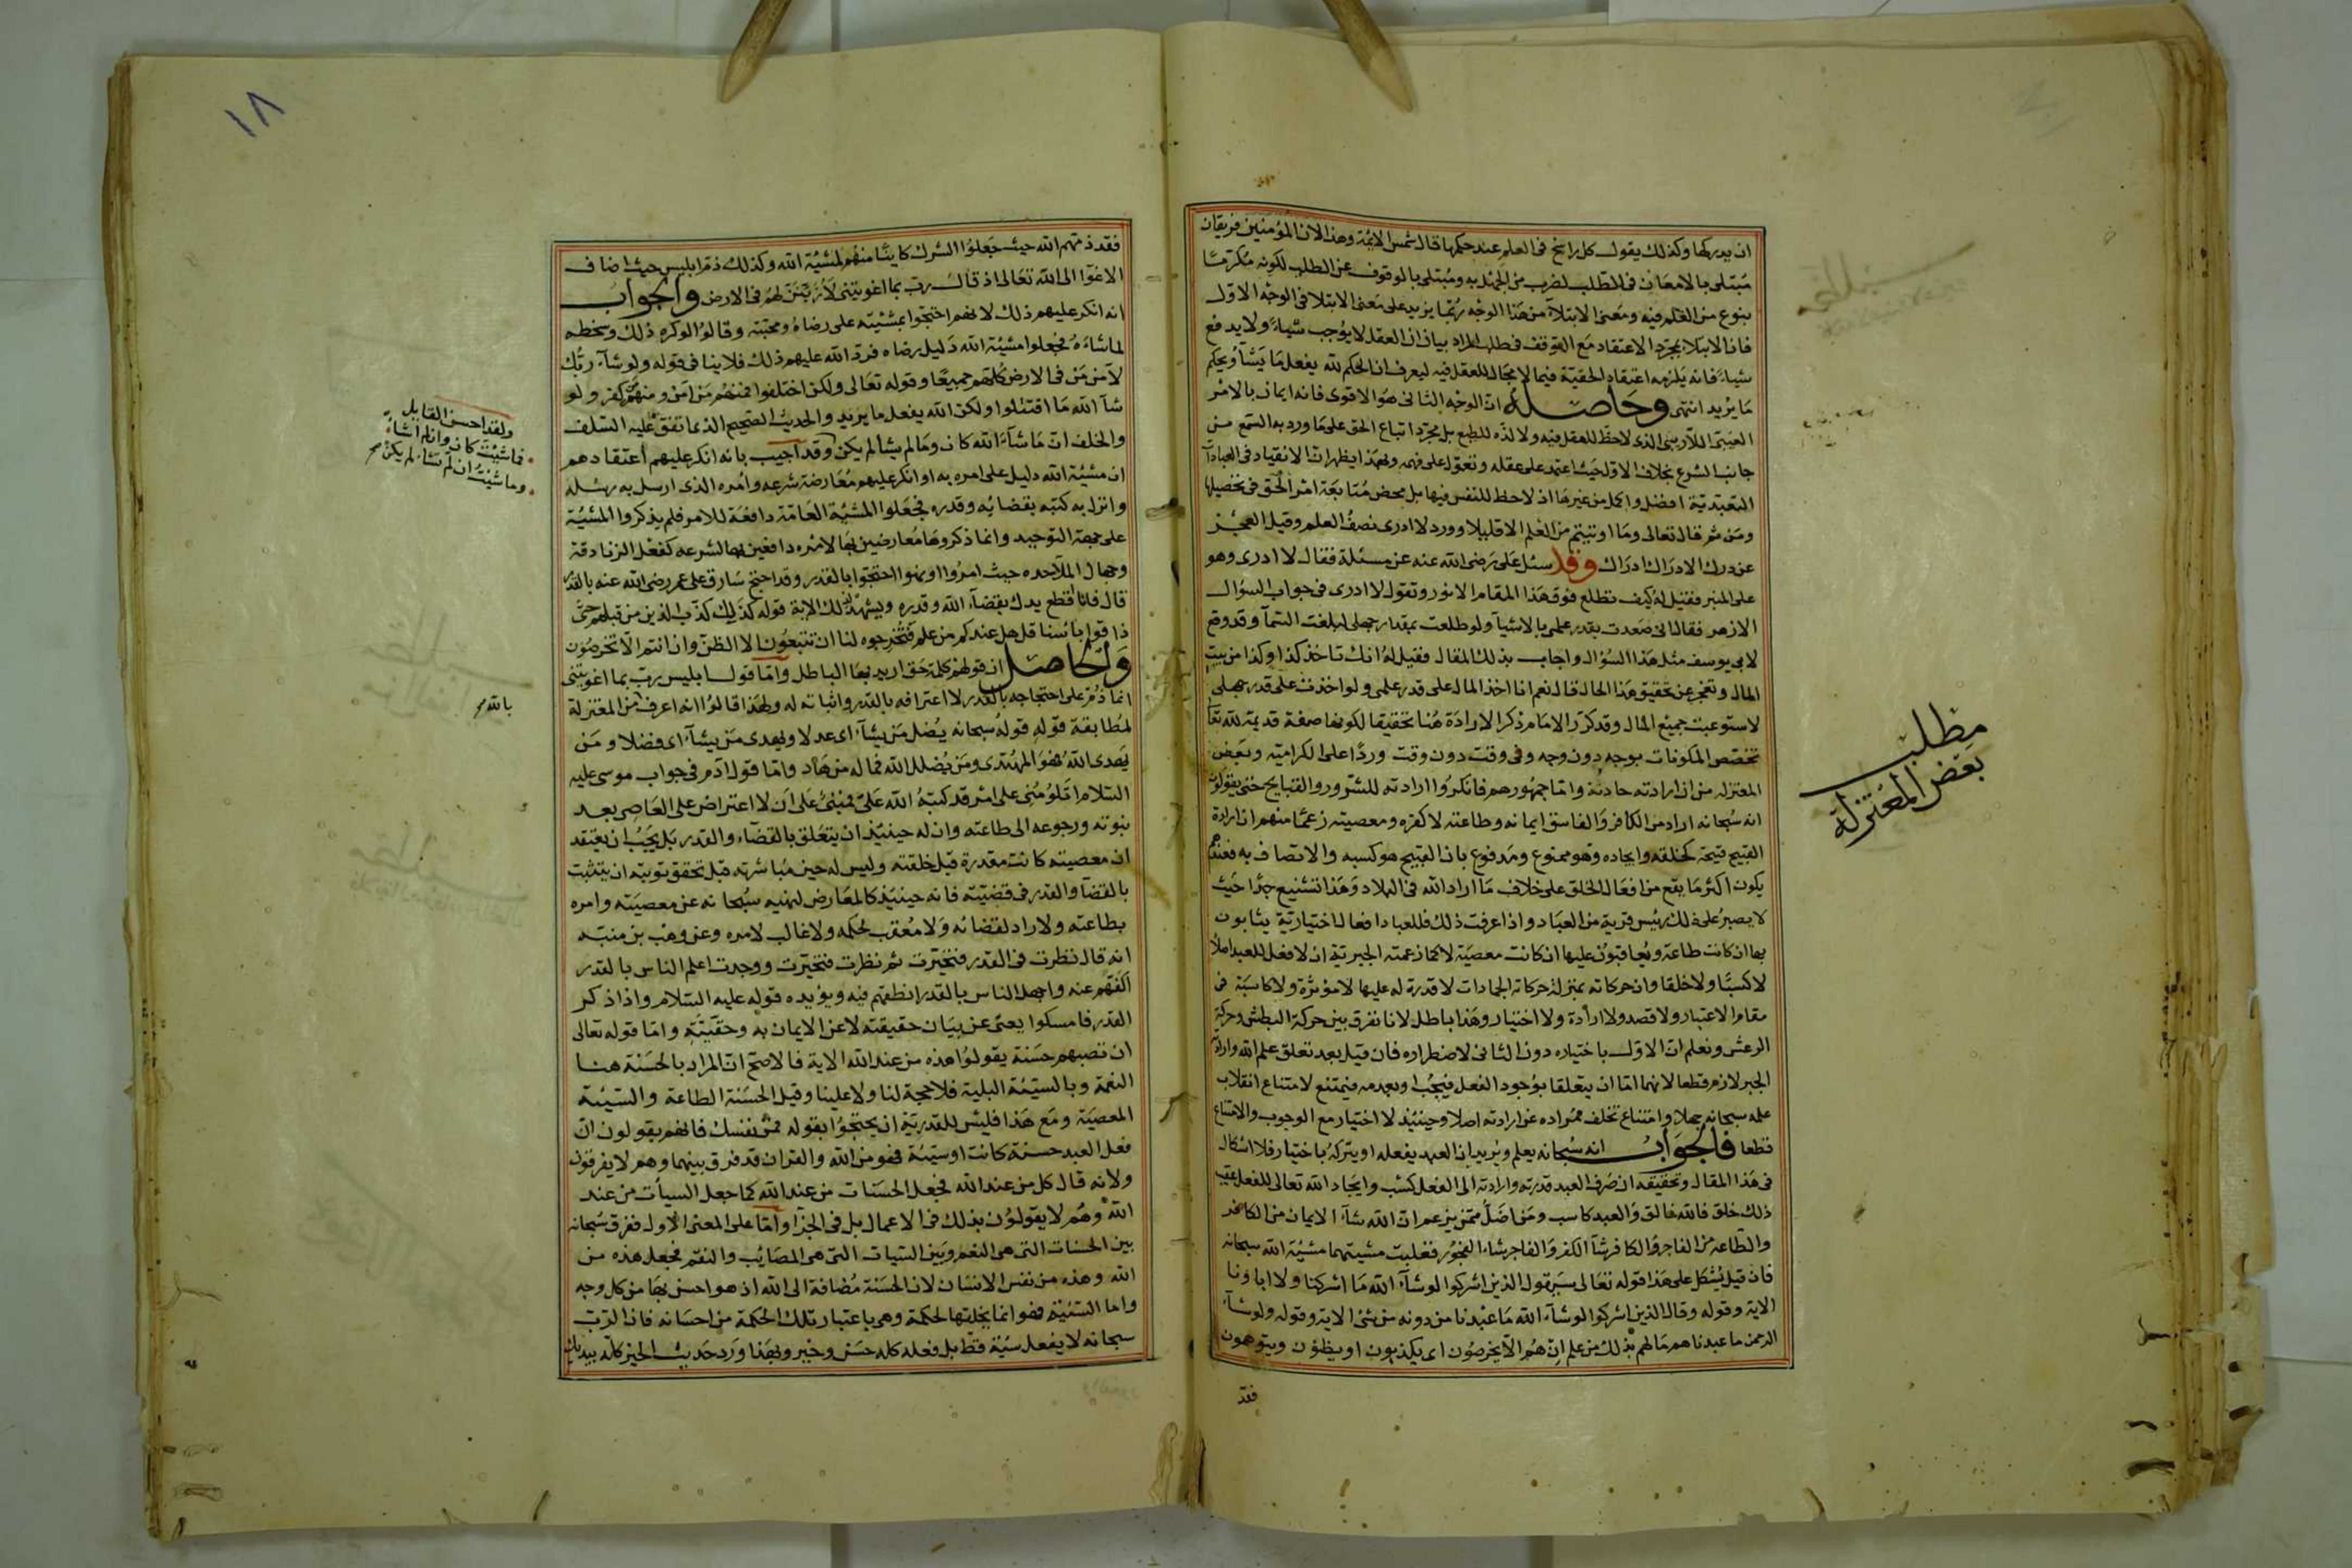 ان يدركها وكذلك يقول كل راسخ فى العلم عند حكمها قال شمس الايمة وهذا لان المؤمنين فريقان
مبتلى بالامعان فى الطلب لضرب من الجهل به ومبتلى بالوقوف عن الطلب لكونه مكرمًا
بنوع من العلم فيه ومعنى الابتلآ من هذا الوجه ربما يزيد على معنى الابتلا فى الوجه الاول
فان الابتلا بمجرد الاعتقاد مع التوقف فى طلب المراد بيان ان العقل لا يوجب شيأ ولا يدفع
شيأ فانه يلزمه اعتقاد الحقية فيما لا مجال للعقل فيه ليعرف ان الحكم لله يفعل ما يشآ ويحكم
ما يريد انتهى وحاصله ان الوجه الثانى هو الاقوى فانه ايمان بالامر
الغيبى اللازمى الذى لاحظ للعقل فيه ولا لذه للطبع بل مجرد اتباع الحق على ما ورد به السمع من
جانب الشرع بخلاف الاول حيث اعتمد على عقله وتعول على فهمه وبهذا يظهر ان الانقياد فى العبادآت
التعبدية افضل واكمل من غيرها اذ لاحظ للنفس فيها بل محض متابعة امر الحق فى تحصيلها
ومن ثم قال تعالى وما اوتيتم من العلم الا قليلا وورد لا ادرى نصف العلم وقيل العجز
عن درك الادراك ادراك وقد سئل على رضى الله عنه عن مسئلة فقال لا ادرى وهو
على المنبر فقيل له كيف تطلع فوق هذا المقام الانور وتقول لا ادرى فى جواب السؤال
الازهر فقال انى صعدت بقدر علمى بالاشيآ ولو طلعت بمقدار جهلى لبلغت السمآ وقد وقع
لابى يوسف مثل هذا السؤال واجاب بذلك المقال فقيل له انك تاخذ كذا وكذا من بيت
المال وتعجز عن تحقيق هذا الحال قال نعم انا اخذ المال على قدر علمى ولو اخذت على قدر جهلى
لاستوعبت جميع المال وقد كرر الامام ذكر الارادة هنا تحقيقا لكونها صفة قديمة لله تعا
تخصص المكونات بوجه دون وجه وفى وقت دون وقت وردًا على الكرامية وبعض
المعتزله من ان ارادته حادثة واما جمهورهم فانكروا ارادته للشرور والقبايح حتى يقولون
انه سبحانه اراد من الكافر والفاسق ايمانه وطاعته لا كفره ومعصيته زعمًا منهم ان ارادة
القبيح قبيحة كخلقه وايجاده وهو ممنوع ومدفوع بان القبيح هو كسبه والاتصاف به فعندهم
يكون اكثر ما يقع من افعال الخلق على خلاف ما اراد الله فى البلاد وهذا تشنيع جدًا حيث
لا يصبر على ذلك رئيس قرية من العباد واذا عرفت ذلك فللعباد افعال اختيارية يثابون
بها ان كانت طاعة ويعاقبون عليها ان كانت معصية لا كما زعمته الجبرية ان لا فعل للعبد اصلا
لا كسبًا ولا خلقا وان حركاته بمنزلة حركات الجمادات لا قدرة له عليها لا مؤثرة ولا كاسبة فى
مقام الاعتبار ولا قصد ولا ارادة ولا اختيار وهذا باطل لانا نفرق بين حركة البطش وحركة
الرعش ونعلم ان الاول باختياره دون الثانى لاضطراره فان قيل بعد تعلق علم الله وارادته
الجبر لازم قطعا لانهما اما ان يتعلقا بوجود الفعل فيجب او بعدمه فيمتنع لامتناع انقلاب
علمه سبحانه جهلا وامتناع تخلف مراده عن ارادته اصلا وحينئذ لا اختيار مع الوجوب والامتناع
قطعا فالجواب انه سبحانه يعلم ويريد ان العبد يفعله او يتركه باختيار فلا اشكال
فى هذا المقال وتحقيقه ان صرف العبد قدرته وارادته الى الفعل كسب وايجاد الله تعالى للفعل عقيب
ذلك خلق فالله خالق والعبد كاسب ومن اضل ممن يزعم ان الله شآء الايمان من الكافر
والطاعة من الفاجر والكافر شآ الكفر والفاجر شاء الفجور فغلبت مشيتهما مشيئة الله سبحانه
فان قيل يشكل على هذا قوله تعالى سيقول الذين اشركوا لو شآء الله ما اشركنا ولا اباونا
الاية وقوله وقال الذين اشركوا لو شآء الله ما عبدنا من دونه من شئ الاية وقوله ولو شآء
الرحمن ما عبدناهم ما لهم بذلك من علم ان هم الا يخرصون اى يكذبون او يظنون ويتوهمون
فقد
مطلب
بعض المعتزلة
١٨
فقد ذمهم الله حيث جعلوا الشرك كاينًا منهم لمشيئة الله وكذلك ذم ابليس حيث اضاف
الاغوا الى الله تعالى اذ قال رب بما اغويتنى لازينن لهم فى الارض والجواب
انه انكر عليهم ذلك لانهم احتجوا بمشيئته على رضاه ومحبته وقالوا لو كره ذلك وسخطه
لما شاءه فجعلوا مشيئة الله دليل رضاه فرد الله عليهم ذلك فلا ينافى قوله ولو شآء ربك
لآمن من فى الارض كلهم جميعًا وقوله تعالى ولكن اختلفوا فمنهم من امن ومنهم من كفر ولو
شآ الله ما اقتتلوا ولكن الله يفعل ما يريد والحديث الصحيح الذى اتفق عليه السلف
والخلف ان ما شآء الله كان وما لم يشأ لم يكن وقد اجيب بانه انكر عليهم اعتقادهم
ان مشيئة الله دليل على امره به او انكر عليهم معارضة شرعه وامره الذى ارسل به رسله
وانزل به كتبه بقضايه وقدره فجعلوا المشية العامة دافعة للامر فلم يذكروا المشيئة
على جهة التوحيد وانما ذكروها معارضين بها لامره دافعين بها لشرعه كفعل الزنادقة
وجهال الملاحده حيث امروا او نهوا احتجوا بالقدر وقد احتج سارق على عمر رضى الله عنه بالقدر
قال فانا اقطع يدك بقضآء الله وقدره ويشهد لذلك الاية قوله كذلك كذب الذين من قبلهم حتى
ذاقوا بأسنا قل هل عندكم من علم فتخرجوه لنا ان تتبعون الا الظن وان انتم الا تخرصون
والحاصل ان قولهم كلمة حق اريد بها الباطل واما قول ابليس رب بما اغويتنى
انما ذم على احتجاجه بالقدر لا اعترافه بالقدر واثباته له ولهذا قالوا انه اعرف من المعتزلة
لمطابقة قوله قوله سبحانه يضل من يشآء اى عدلا ويهدى من يشآء اى فضلا ومن
يهدى الله فهو المهتدى ومن يضلل الله فما له من هاد واما قول ادم فى جواب موسى عليه
السلام اتلومنى على امر قد كتبه الله على فمبنى على ان لا اعتراض على العاصى بعد
بتوبته ورجوعه الى طاعته وان له حينئذ ان يتعلق بالقضآء والقدر بل يجب ان يعتقد
ان معصيته كانت مقدرة قبل خلقته وليس له حين مباشرته قبل تحقق توبته ان يتشبث
بالقضآ والقدر فى قضيته فانه حينئذ كالمعارض لنهيه سبحانه عن معصيته وامره
بطاعته ولا راد لقضائه ولا معقب لحكمه ولا غالب لامره وعن وهب بن منبه
انه قال نظرت فى القدر فتحيرت ثم نظرت فتحيرت ووجدت اعلم الناس بالقدر
اكفهم عنه واجهل الناس بالقدر انطقهم فيه ويؤيده قوله عليه السلام واذا ذكر
القدر فامسكوا يعنى عن بيان حقيقته لا عن الايمان به وحقيته واما قوله تعالى
ان تصبهم حسنة يقولوا هذه من عند الله الاية فالاصح ان المراد بالحسنة هنا
النعمة وبالسيئة البلية فلا حجة لنا ولا علينا وقيل الحسنة الطاعة والسيئة
المعصية ومع هذا فليس للقدرية ان يحتجوا بقوله فمن نفسك فانهم يقولون ان
فعل العبد حسنة كانت او سيئة فهو من الله والقران قد فرق بينهما وهم لا يفرقون
ولانه قال كل من عند الله فجعل الحسنات من عند الله كما جعل السيأت من عند
الله وهم لا يقولون بذلك فى الاعمال بل فى الجزآ واما على المعنى الاول ففرق سبحانه
بين الحسنات التى هى النعم وبين السيات التى هى المصائب والنقم فجعل هذه من
الله وهذه من نفس الانسان لان الحسنة مضافة الى الله اذ هو احسن بها من كل وجه
واما السيئة فهو انما يخلقها لحكمة وهى باعتبار تلك الحكمة من احسانه فان الرب
سبحانه لا يفعل سيئة قط بل فعله كله حسن وخير وبهذا ورد حديث الخير كله بيديك
ولقد احسن القايل
فما شئت كان وان لم اشأ
وما شئت ان لم تشاء لم يكن
بالله